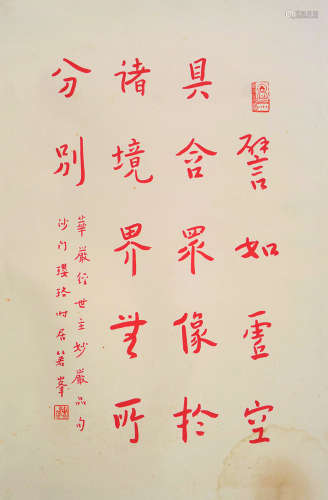 譬如虛空
具含眾像於
諸境界無所
分別
華嚴經世主妙嚴品句
沙門瓔珞時居莟峯